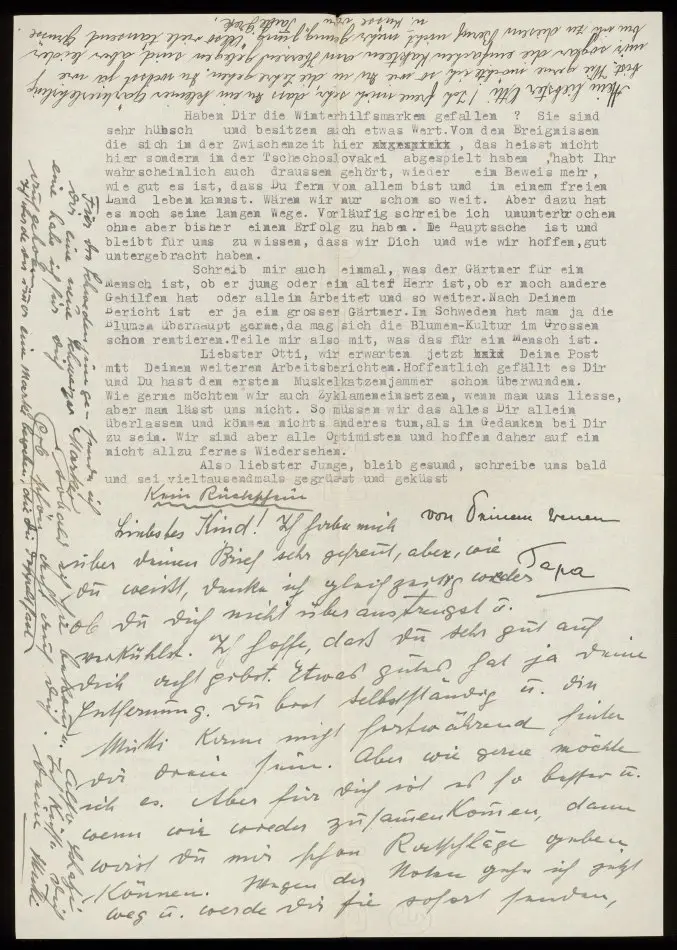 Mein liebster Otti! Ich freue mich sehr, dass Du ein kleiner Gärtnerlehrling
bist. Wie gerne möchte ich so wie Du in die Lehre gehen. Du weisst ja wie
mir sogar die einfachen Kakteen am Herzen gelegen sind aber leider
bin ich zu diesem Beruf nicht mehr jung genug. Also viele tausend Grüsse
u. Küsse von
Haben Dir die Winterhilfsmarken gefallen ? Sie sind
sehr hübsch und besitzen auch etwas Wert.Von den Ereignissen
die sich in der Zwischenzeit hier , das heisst nicht
hier sondern in der Tschechoslovakei abgespielt haben ,habt Ihr
wahrscheinlich auch draussen gehört, wieder ein Beweis mehr,
wie gut es ist, dass Du fern von allem bist und in einem freien
Land leben kannst. Wären wir nur schon so weit. Aber dazu hat
es noch seine langen Wege. Vorläufig schreibe ich ununterbrochen
ohne aber bisher einen Erfolg zu haben. De Hauptsache ist und
bleibt für uns zu wissen, dass wir Dich und wie wir hoffen,gut
untergebracht haben.
Schreib mir auch einmal, was der Gärtner für ein
Mensch ist, ob er jung oder ein alter Herr ist,ob er noch andere
Gehilfen hat oder allein Arbeitet und so weiter.Nach Deinem
Bericht ist er ja ein grosser Gärtner.In Schweden hat man ja die
Blumen überhaupt gerne,da mag sich die Blumen-Kultur im Grossen
schon rentieren.Teile mir also mit, was das für ein Mensch ist.
Liebster Otti, wir erwarten jetzt Deine Post
mit Deinen weiteren Arbeitsberichten.Hoffentlich gefällt es Dir
und Du hast den ersten Muskelkatzenjammer schon überwunden.
Wie gerne möchten wir auch Zyklameneinsetzen, wenn man uns liesse,
aber man lässt uns nicht. So müssen wir das alles Dir allein
überlassen und können nichts anderes tun,als in Gedanken bei Dir
zu sein. Wir sind aber alle Optimisten und hoffen daher auf ein
nicht allzu fernes Wiedersehen.
Also liebster Junge, bleib gesund, schreibe uns bald
und sei vieltausendmals gegrüsst und geküsst
von Deinem treuen
Papa
Kein Rückschein
Liebstes Kind! Ich habe mich
über deinen Brief sehr gefreut, aber, wie
du weisst, denke ich gleichzeitig wieder
ob du dich nicht überanstrengst u.
verkühlst. Ich hoffe, daß du sehr gut auf
dich acht gibst. Etwas gutes hat ja deine
Entfernung. Du bist selbstständig u. die
Mutti kann nicht fortwährend hinter
dir drein sein. Aber wie gerne möchte
ich es. Aber für dich ist es so besser u.
wenn wir wieder zusammenkommen, dann
wirst du mir schon Ratschläge geben
können. Wegen der Noten gehe ich jetzt
weg u. werde dir sie sofort senden,
sobald ich sie bekomme.
Ich küsse dich
Deine Mutti